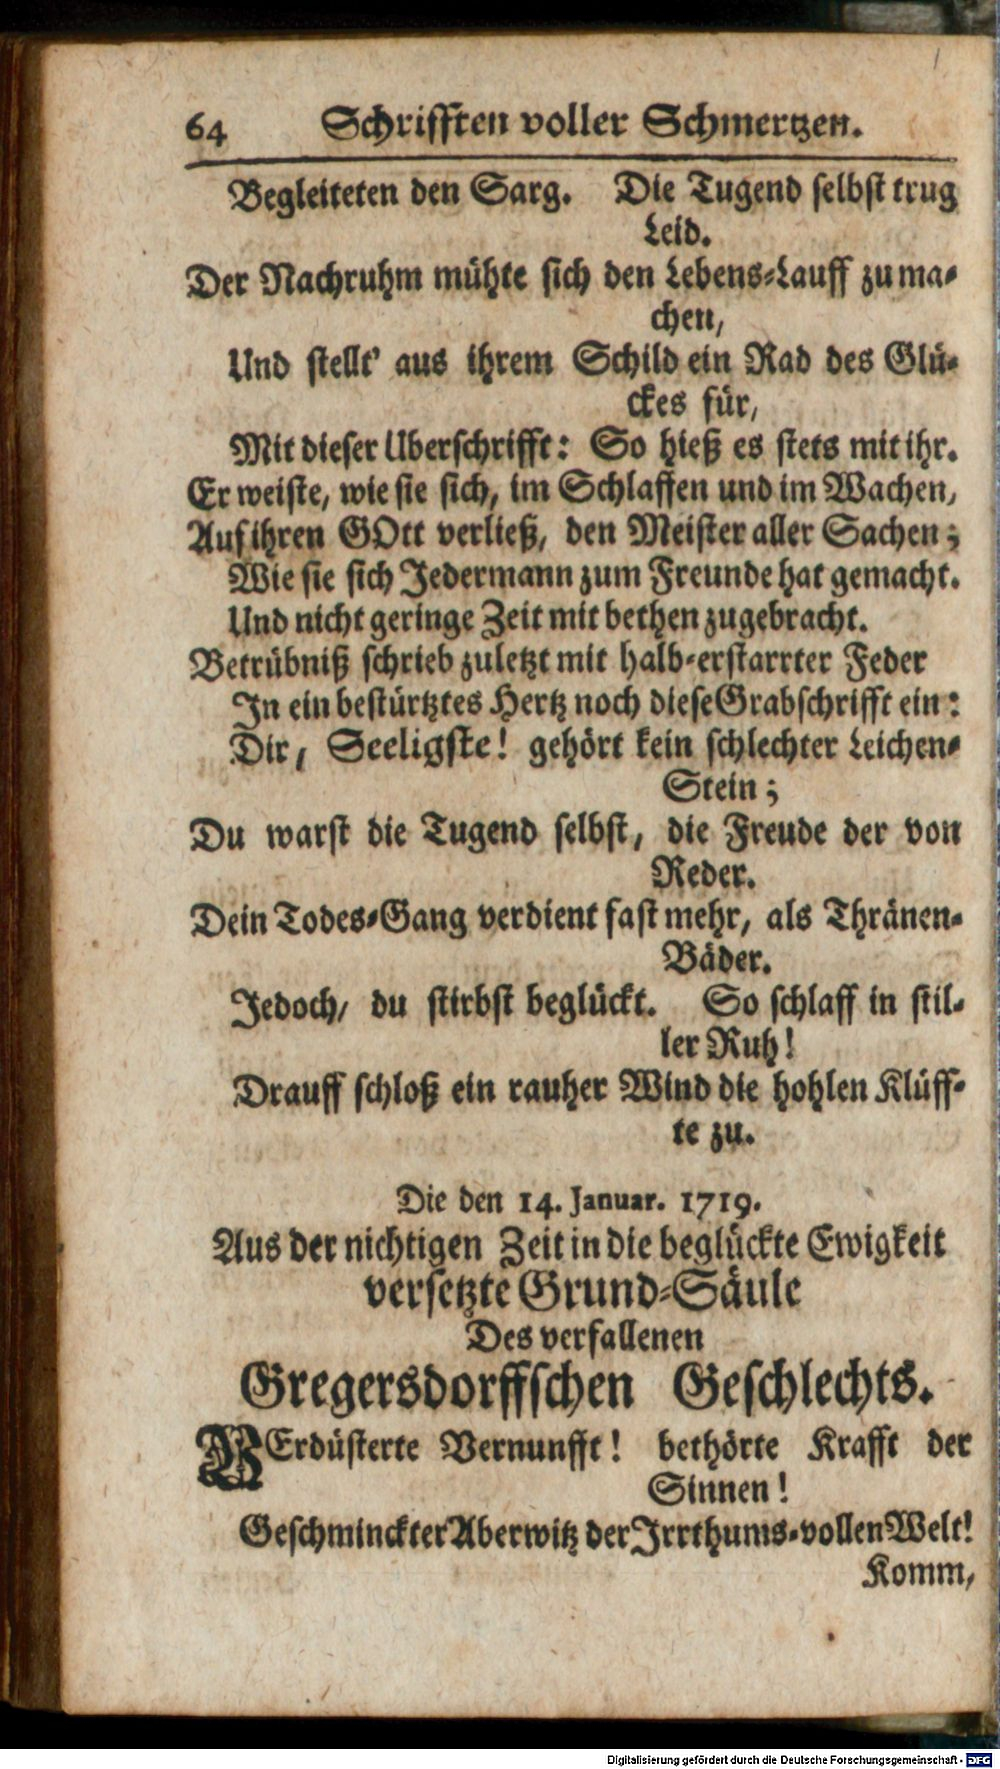 64 Schrifften voller Schmertzen.
Begleiteten den Sarg. Die Tugend selbst trug
Leid.
Der Nachruhm mühte sich den Lebens-Lauff zu ma-
chen,
Und stellt' aus ihrem Schild ein Rad des Glü-
ckes für,
Mit dieser Uberschrifft: So hieß es stets mit ihr.
Er weiste, wie sie sich, im Schlaffen und im Wachen,
Auf ihren GOtt verließ, den Meister aller Sachen;
Wie sie sich Jedermann zum Freunde hat gemacht.
Und nicht geringe Zeit mit bethen zugebracht.
Betrübniß schrieb zuletzt mit halb-erstarrter Feder
In ein bestürtztes Hertz noch diese Grabschrifft ein:
Dir, Seeligste! gehört kein schlechter Leichen-
Stein;
Du warst die Tugend selbst, die Freude der von
Reder.
Dein Todes-Gang verdient fast mehr, als Thränen-
Bäder.
Jedoch, du stirbst beglückt. So schlaff in stil-
ler Ruh!
Drauff schloß ein rauher Wind die hohlen Klüff-
te zu.
Die den 14. Januar. 1719.
Aus der nichtigen Zeit in die beglückte Ewigkeit
versetzte Grund-Säule
Des verfallenen
Gregersdorffschen Geschlechts.
VErdüsterte Vernunfft! bethörte Krafft der
Sinnen!
Geschminckter Aberwitz der Irrthums-vollen Welt!
Komm,
Digitalisierung gefördert durch die Deutsche Forschungsgemeinschaft - DFG